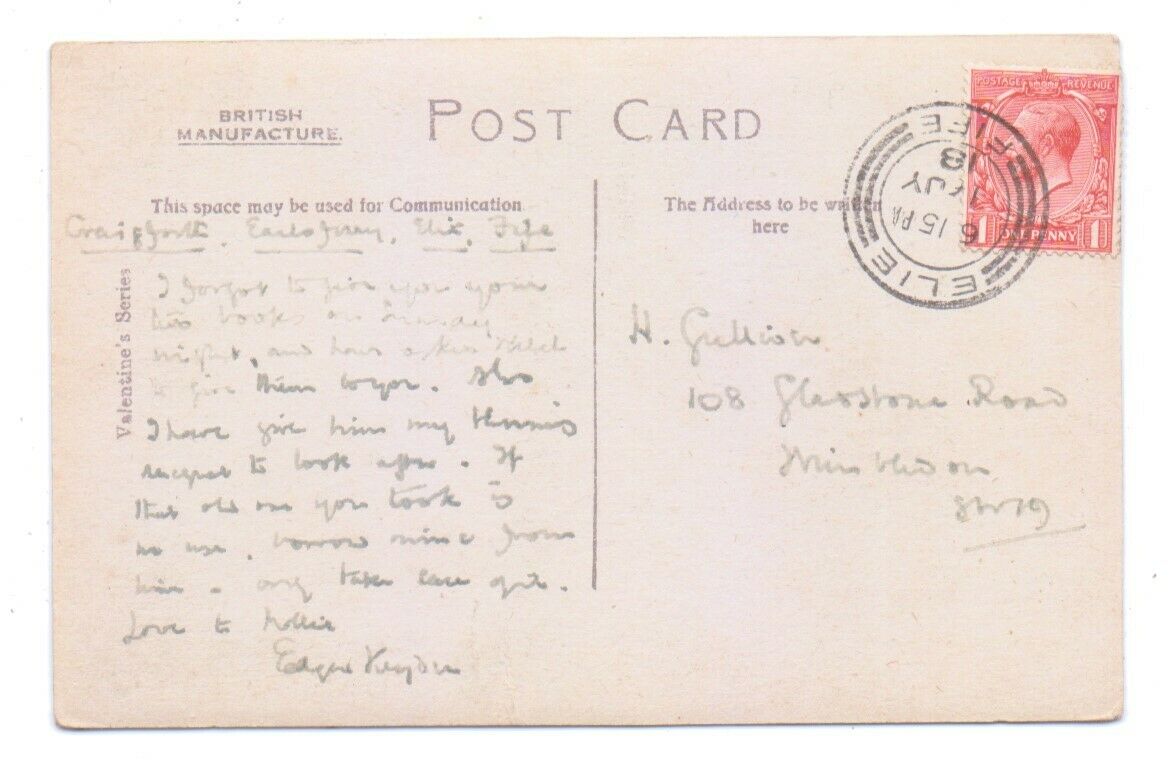 BRITISH
MANUFACTURE.
POST CARD
This space may be used for Communication
Craigforth. Earlsferry, Elie, Fife
I forgot to give you your
two books on Sunday
night, and have asked
to give them to you. Also
I have give him my tennis
racquet to look after. If
that old one you took is
no use, borrow mine from
him - only take care of it.
Love to Mollie
Edgar
Valentine's Series
The Address to be written
here
H. Gulliver
108 Gladstone Road
Wimbledon
SW19
POSTAGE REVENUE
1 ONE PENNY 1
ELIE
FIFE
6 15 PM
17 JY
18